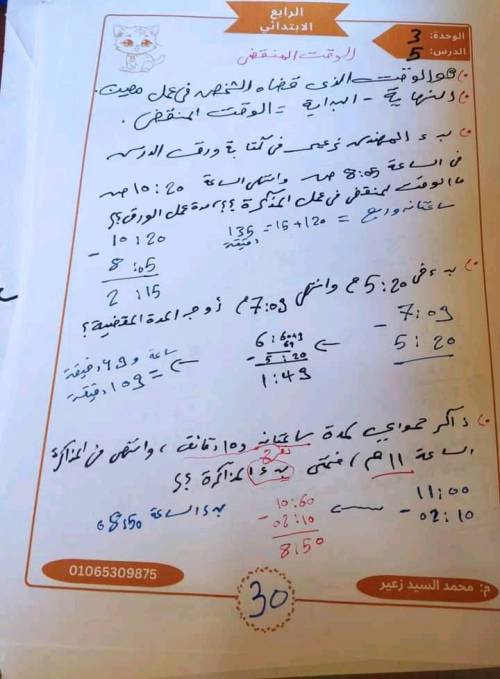 الرابع
الابتدائي
الوحدة: 3
الدرس: 5
الوقت المنقضي
هو الوقت الذى قضاه الشخص فى عمل معين.
النهاية - البداية = الوقت المنقضى.
بدء المهندس زعير فى كتابة ورق الدرس
فى الساعة 8:05 ص وانتهى الساعة 10:20 ص
ما الوقت المنقضى فى عمل المذكرة؟؟، مدة عمل الورق؟؟
ساعتان وربع = 120+15= 135 دقيقة
10:20
- 8:05
2:15
بدء فى 5:20 م وانتهى 7:09 م أوجد المدة المنقضية؟
- 7:09
5:20
6:69
- 5:20
1:49
ساعة و 49 دقيقة
= 109 دقيقة
ذاكر حمواي لمدة ساعتان و 10 دقائق، وانتهى من المذاكرة
الساعة 11 م، فمتى بدء المذاكرة؟؟
11:00
- 02:10
10:60
- 02:10
8:50
بدء الساعة 8:50 م
01065309875
م: محمد السيد زعير
30